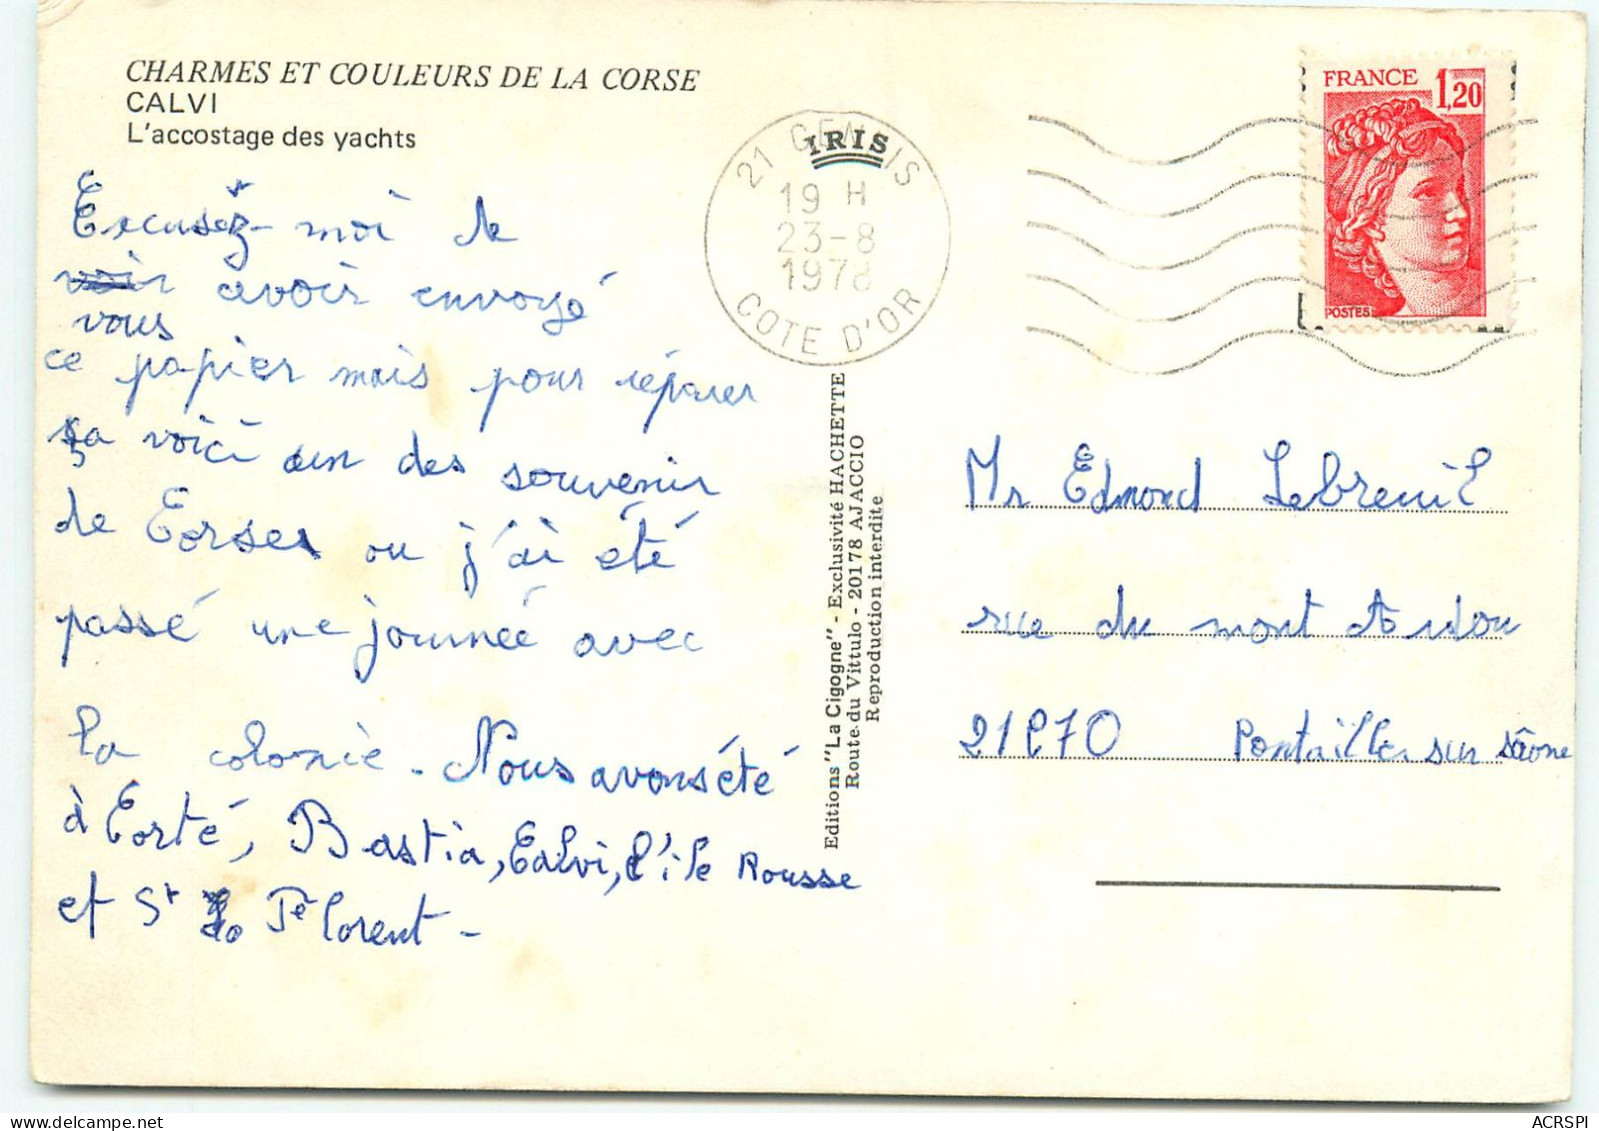 CHARMES ET COULEURS DE LA CORSE
CALVI
L'accostage des yachts
Excusez-moi de
vous avoir envoyé
ce papier mais pour réparer
ça voici un des souvenir
de Corses ou j'ai été
passé une journée avec
la colonie. Nous avons été
à Corté, Bastia, Calvi, l'île Rousse
et St Florent -
21 GENLIS
19 H
23-8
1978
COTE D'OR
IRIS
FRANCE 1,20
POSTES
Editions "La Cigogne" - Exclusivité HACHETTE
Route du Vittulo - 20178 AJACCIO
Reproduction interdite
Mr Edmond Lebreuil
rue du mont Ardou
21270 Pontailler sur Sâone
delcampe.net
ACRSPI